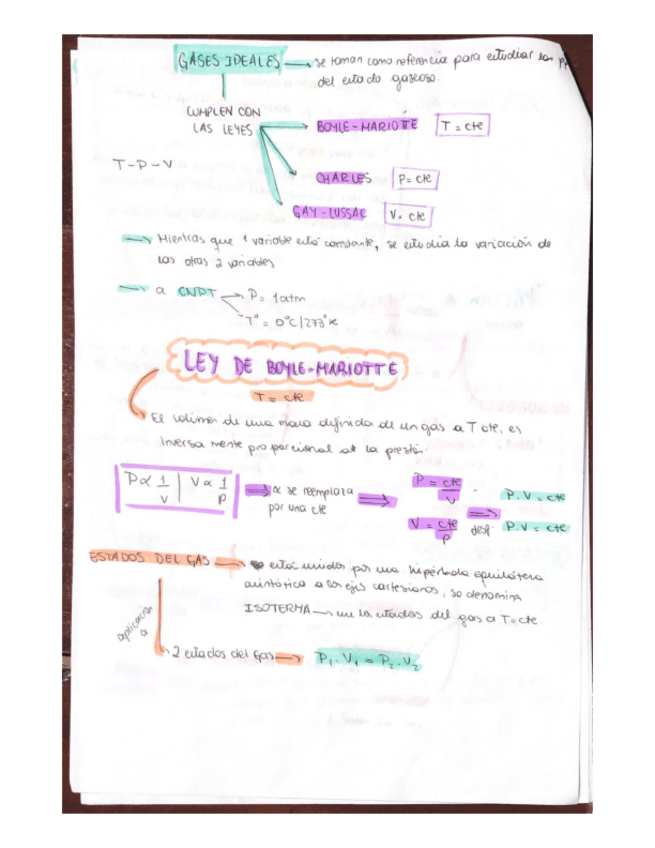 GASES IDEALES → se toman como referencia para estudiar las
del estado gaseoso.
CUMPLEN CON
LAS LEYES
BOYLE-MARIOTTE T = cte
T-P-V
CHARLES P = cte
GAY-LUSSAC V = cte
→ Mientras que 1 variable está constante, se estudia la variación de
las otras 2 variables
→ a CNPT → P = 1atm
T° = 0°C/273°K
LEY DE BOYLE-MARIOTTE
T = cte
El volumen de una masa definida de un gas a T cte, es
inversamente proporcional a la presión.
P ∝ 1/V | V ∝ 1/P ⇒ ∝ se reemplaza por una cte ⇒ P = cte/V P.V = cte
V = cte/P ⇒ desp. P.V = cte
ESTADOS DEL GAS → están unidos por una hipérbola equilátera
asintótica a los ejes cartesianos, se denomina
ISOTERMA → une los estados del gas a T = cte.
aplicación
a
2 estados del gas → P₁.V₁ = P₂.V₂